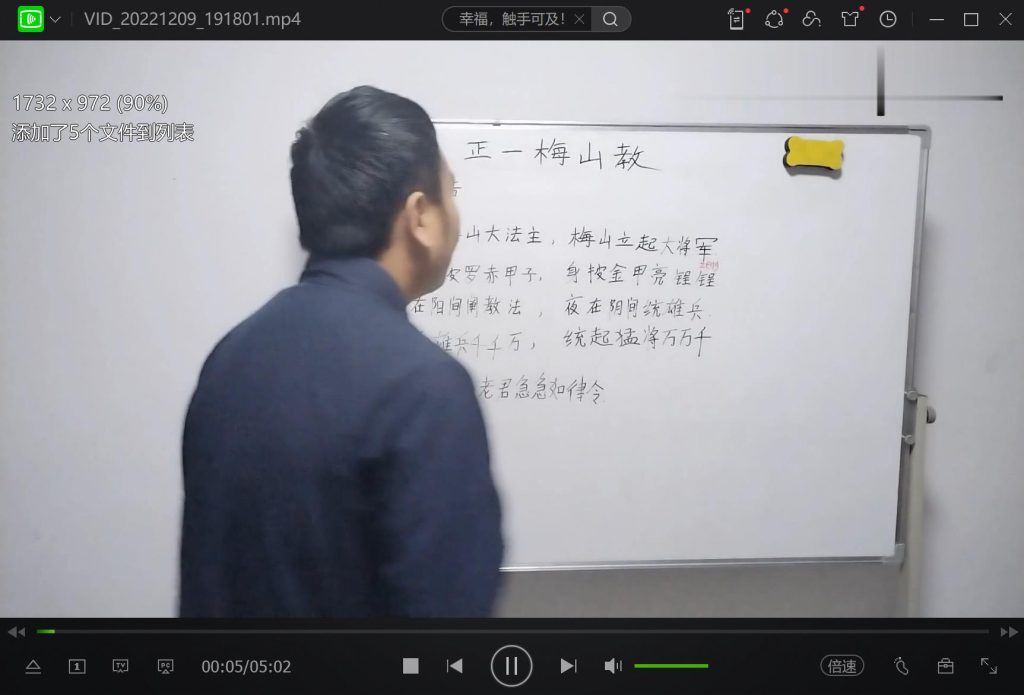 VID_20221209_191801.mp4
幸福，触手可及！
1732 x 972 (90%)
添加了5个文件到列表
正一梅山教
山大法主，梅山立起大将军
zeng
罗赤甲子，身按金甲亮锃锃
在阳间阐教法，夜在阴间统雄兵
雄兵千千万，统起猛将万万千
老君急急如律令
1
TV
PC
00:05/05:02
倍速